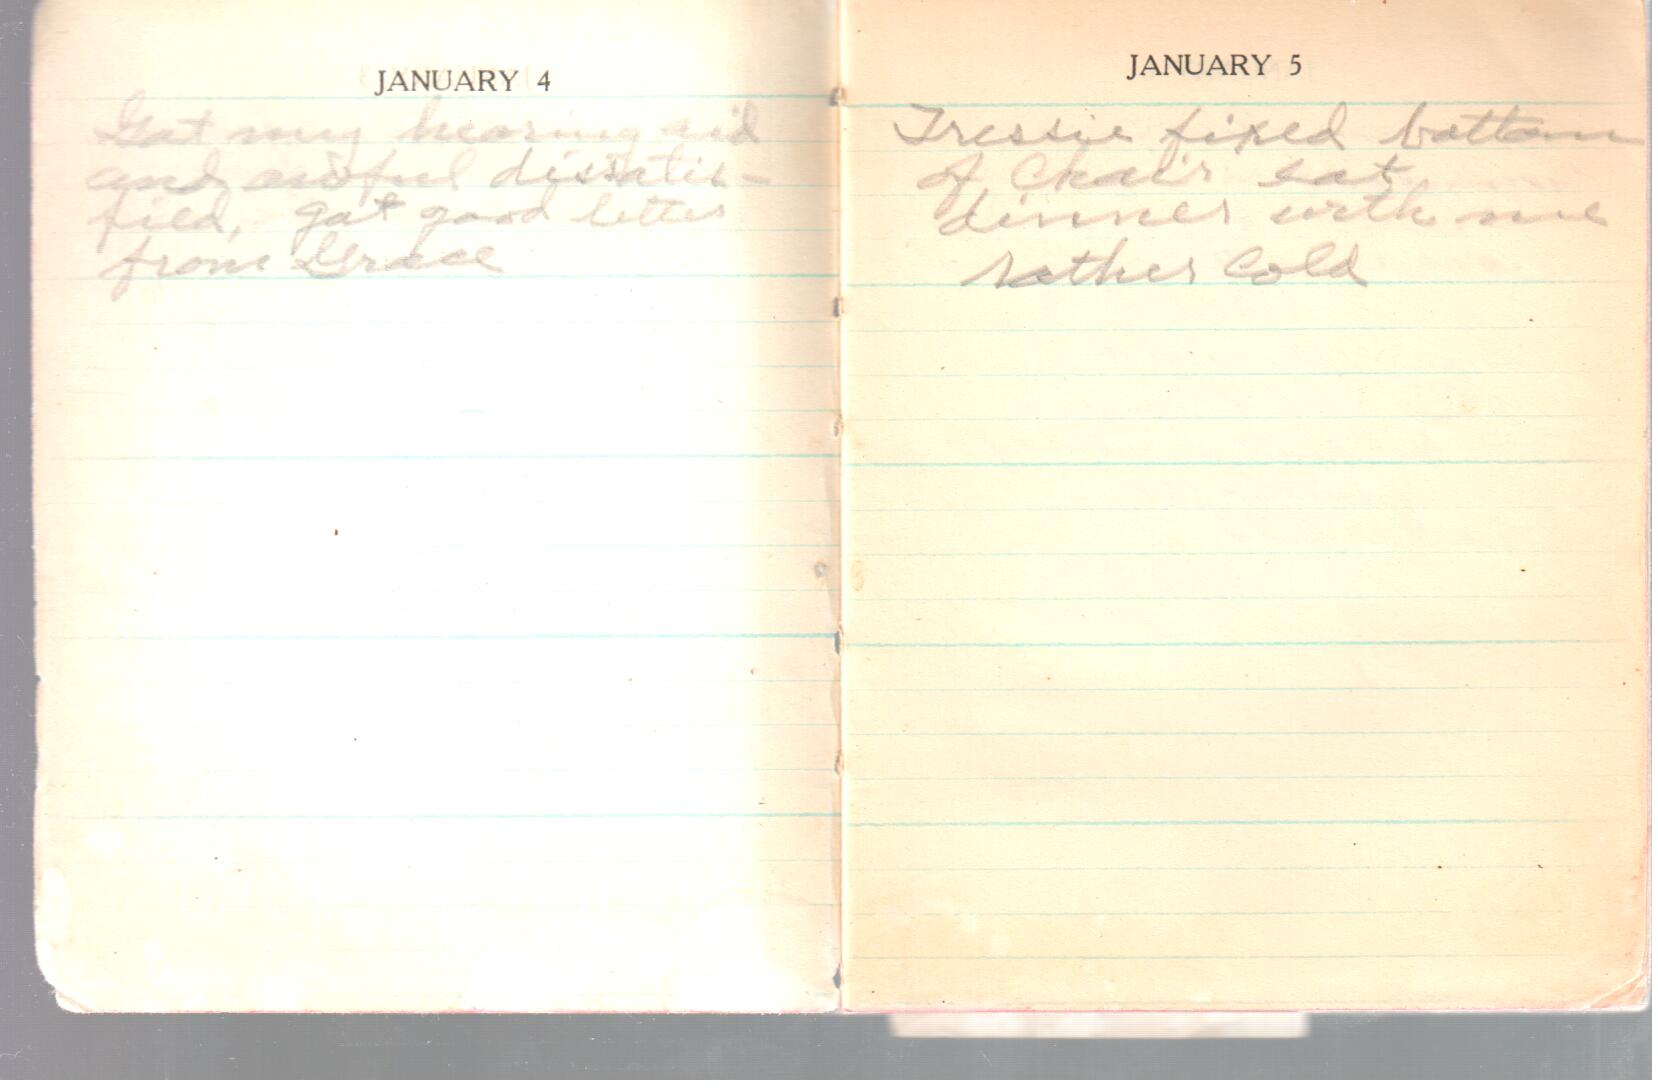 JANUARY 4
Got my hearing aid
and awful dissatis-
fied, got good letter
from Grace
JANUARY 5
Tressie fixed bottom
of Chair eat
dinner with me
rather Cold